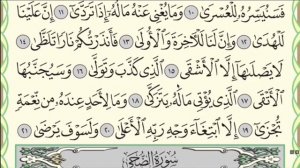 فَسَنُيَسِّرُهُۥ لِلْعُسْرَىٰ ١٠ وَمَا يُغْنِى عَنْهُ مَالُهُۥٓ إِذَا تَرَدَّىٰٓ ١١ إِنَّ عَلَيْنَا
لَلْهُدَىٰ ١٢ وَإِنَّ لَنَا لَلْـَٔاخِرَةَ وَٱلْأُولَىٰ ١٣ فَأَنذَرْتُكُمْ نَارًا تَلَظَّىٰ ١٤
لَا يَصْلَىٰهَآ إِلَّا ٱلْأَشْقَى ١٥ ٱلَّذِى كَذَّبَ وَتَوَلَّىٰ ١٦ وَسَيُجَنَّبُهَا
ٱلْأَتْقَى ١٧ ٱلَّذِى يُؤْتِى مَالَهُۥ يَتَزَكَّىٰ ١٨ وَمَا لِأَحَدٍ عِندَهُۥ مِن نِّعْمَةٍ
تُجْزَىٰٓ ١٩ إِلَّا ٱبْتِغَآءَ وَجْهِ رَبِّهِ ٱلْأَعْلَىٰ ٢٠ وَلَسَوْفَ يَرْضَىٰ ٢١
سُورَةُ الضُّحَىٰ